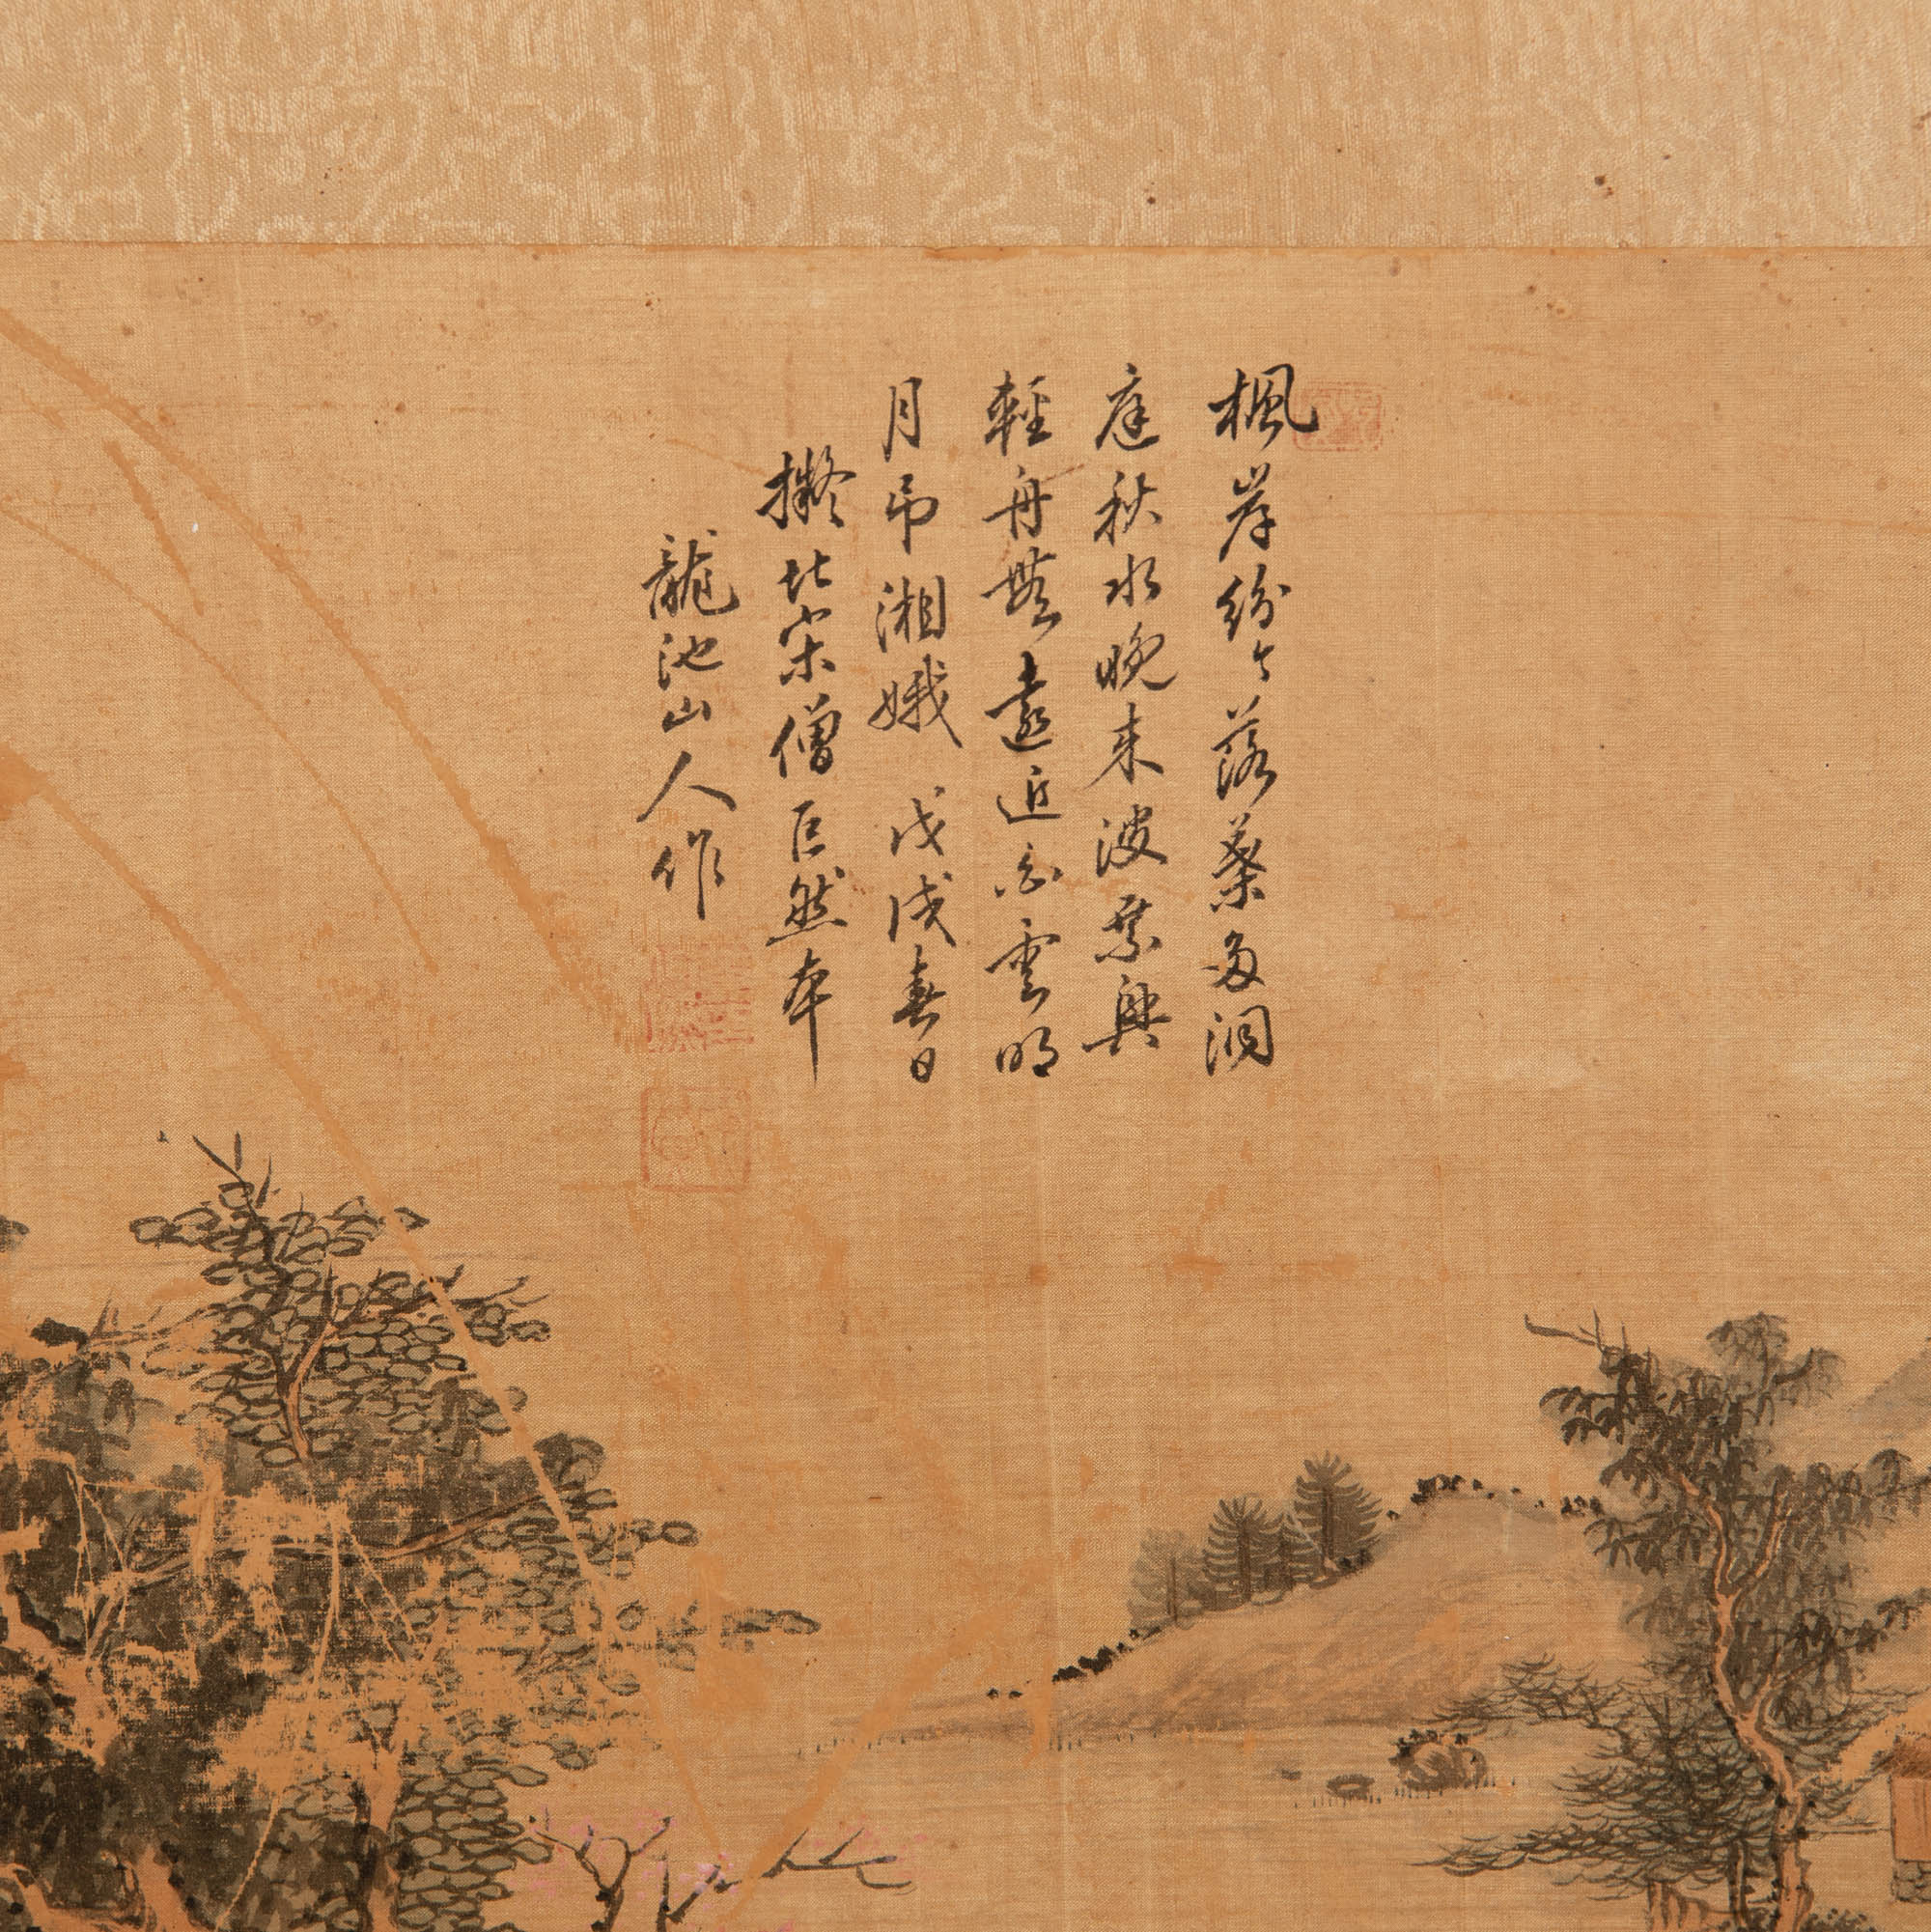 楓岸紛〻落葉多洞
庭秋水晚来波乘興
輕舟無遠近白雲明
月吊湘娥 戊戌春日
擬北宋僧巨然本
龍池山人作